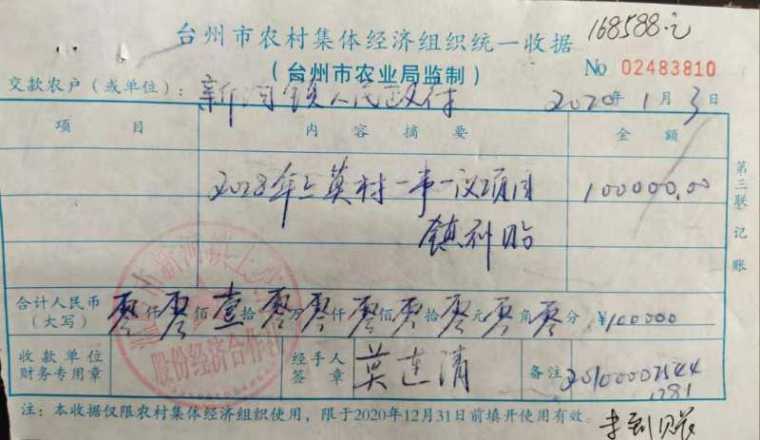 168588.元
台州市农村集体经济组织统一收据
(台州市农业局监制)
No 02483810
交款农户(或单位): 新河镇人民政府 2020年1月3日
项目 内容摘要 金额
2018年上莫村一事一议项目 100000.00
镇补助
第三联 记账
合计人民币(大写) 零仟零佰壹拾零万零仟零佰零拾零元零角零分 ¥100000
股份经济合作社
收款单位财务专用章 经手人签章 莫连清 备注 20100007544
1281
注:本收据仅限农村集体经济组织使用,限于2020年12月31日前填开使用有效。
未到账